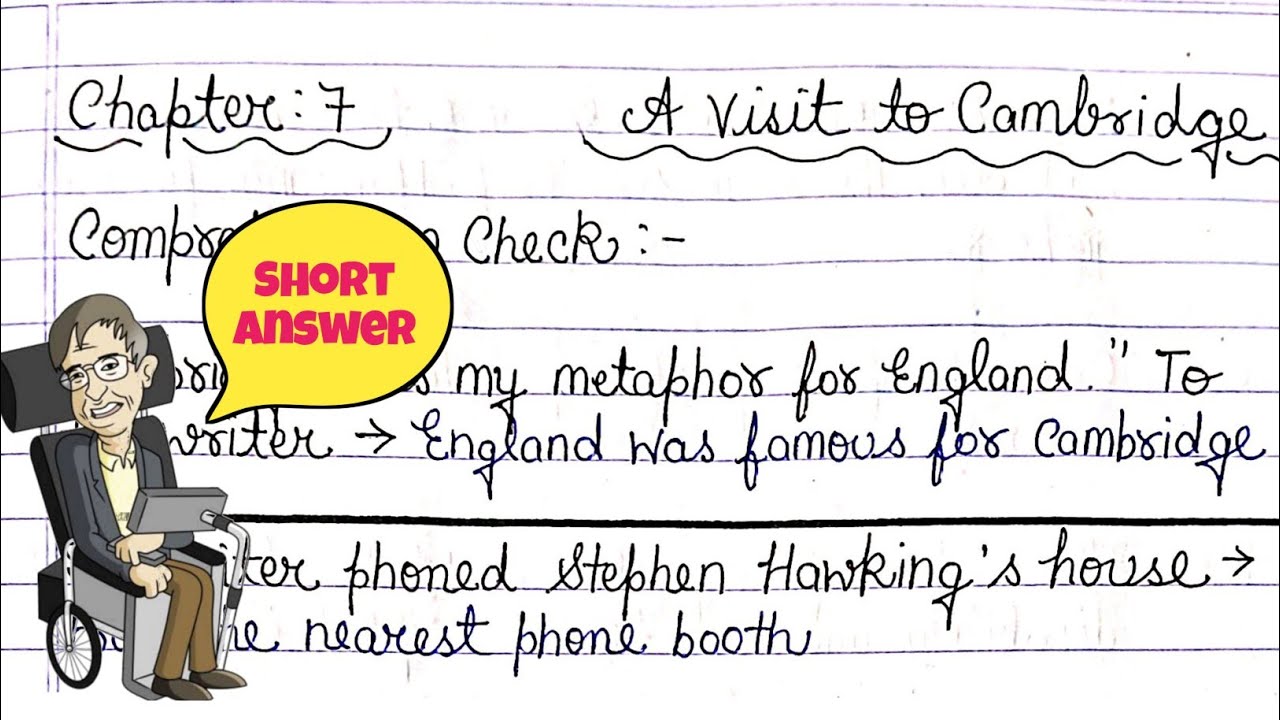 Chapter: 7 A Visit to Cambridge
Check :-
SHORT
ANSWER
my metaphor for England." To
writer → England was famous for Cambridge
phoned Stephen Hawking's house →
nearest phone booth